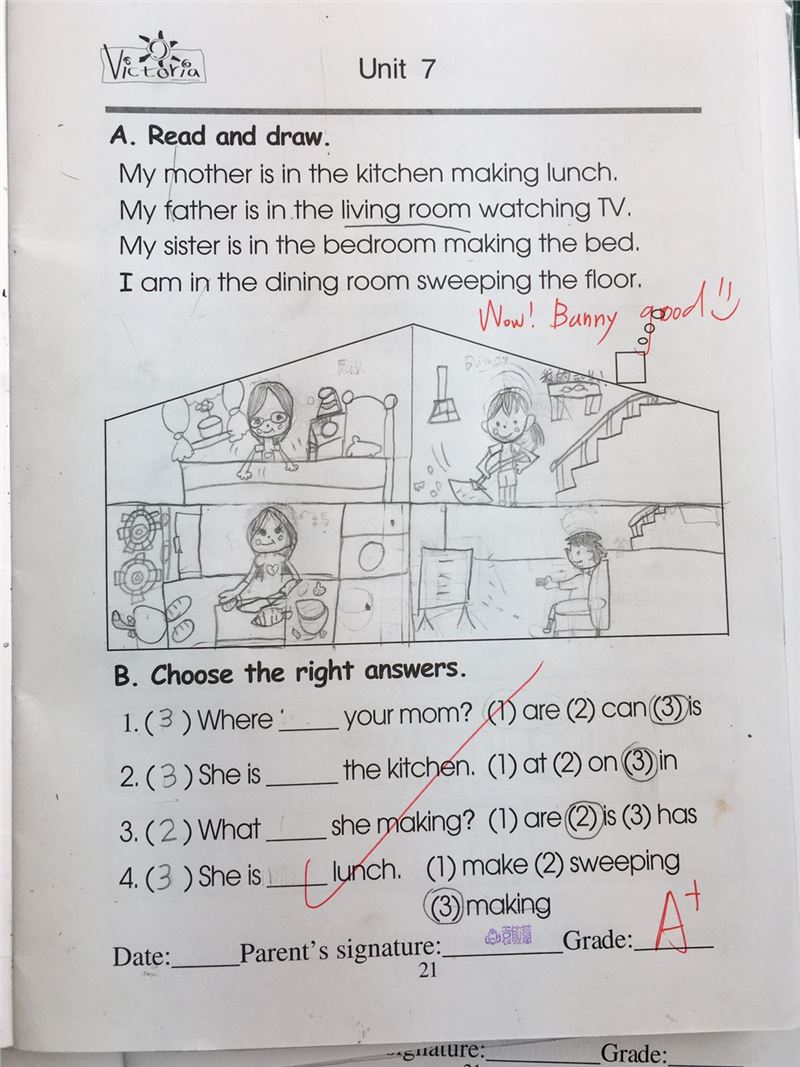 Victoria
Unit 7
A. Read and draw.
My mother is in the kitchen making lunch.
My father is in the living room watching TV.
My sister is in the bedroom making the bed.
I am in the dining room sweeping the floor.
Wow! Bunny good
B. Choose the right answers.
1. ( 3 ) Where ____ your mom? (1) are (2) can (3) is
2. ( 3 ) She is ____ the kitchen. (1) at (2) on (3) in
3. ( 2 ) What ____ she making? (1) are (2) is (3) has
4. ( 3 ) She is ____ lunch. (1) make (2) sweeping
(3) making
Date:____Parent's signature:____Grade:____ A+
21
signature:____Grade:____